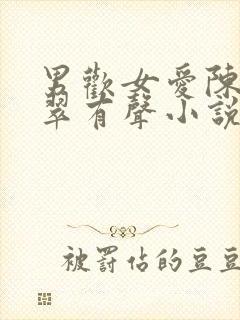 男歡女愛陳
翠有聲小說
被罰佔的豆豆